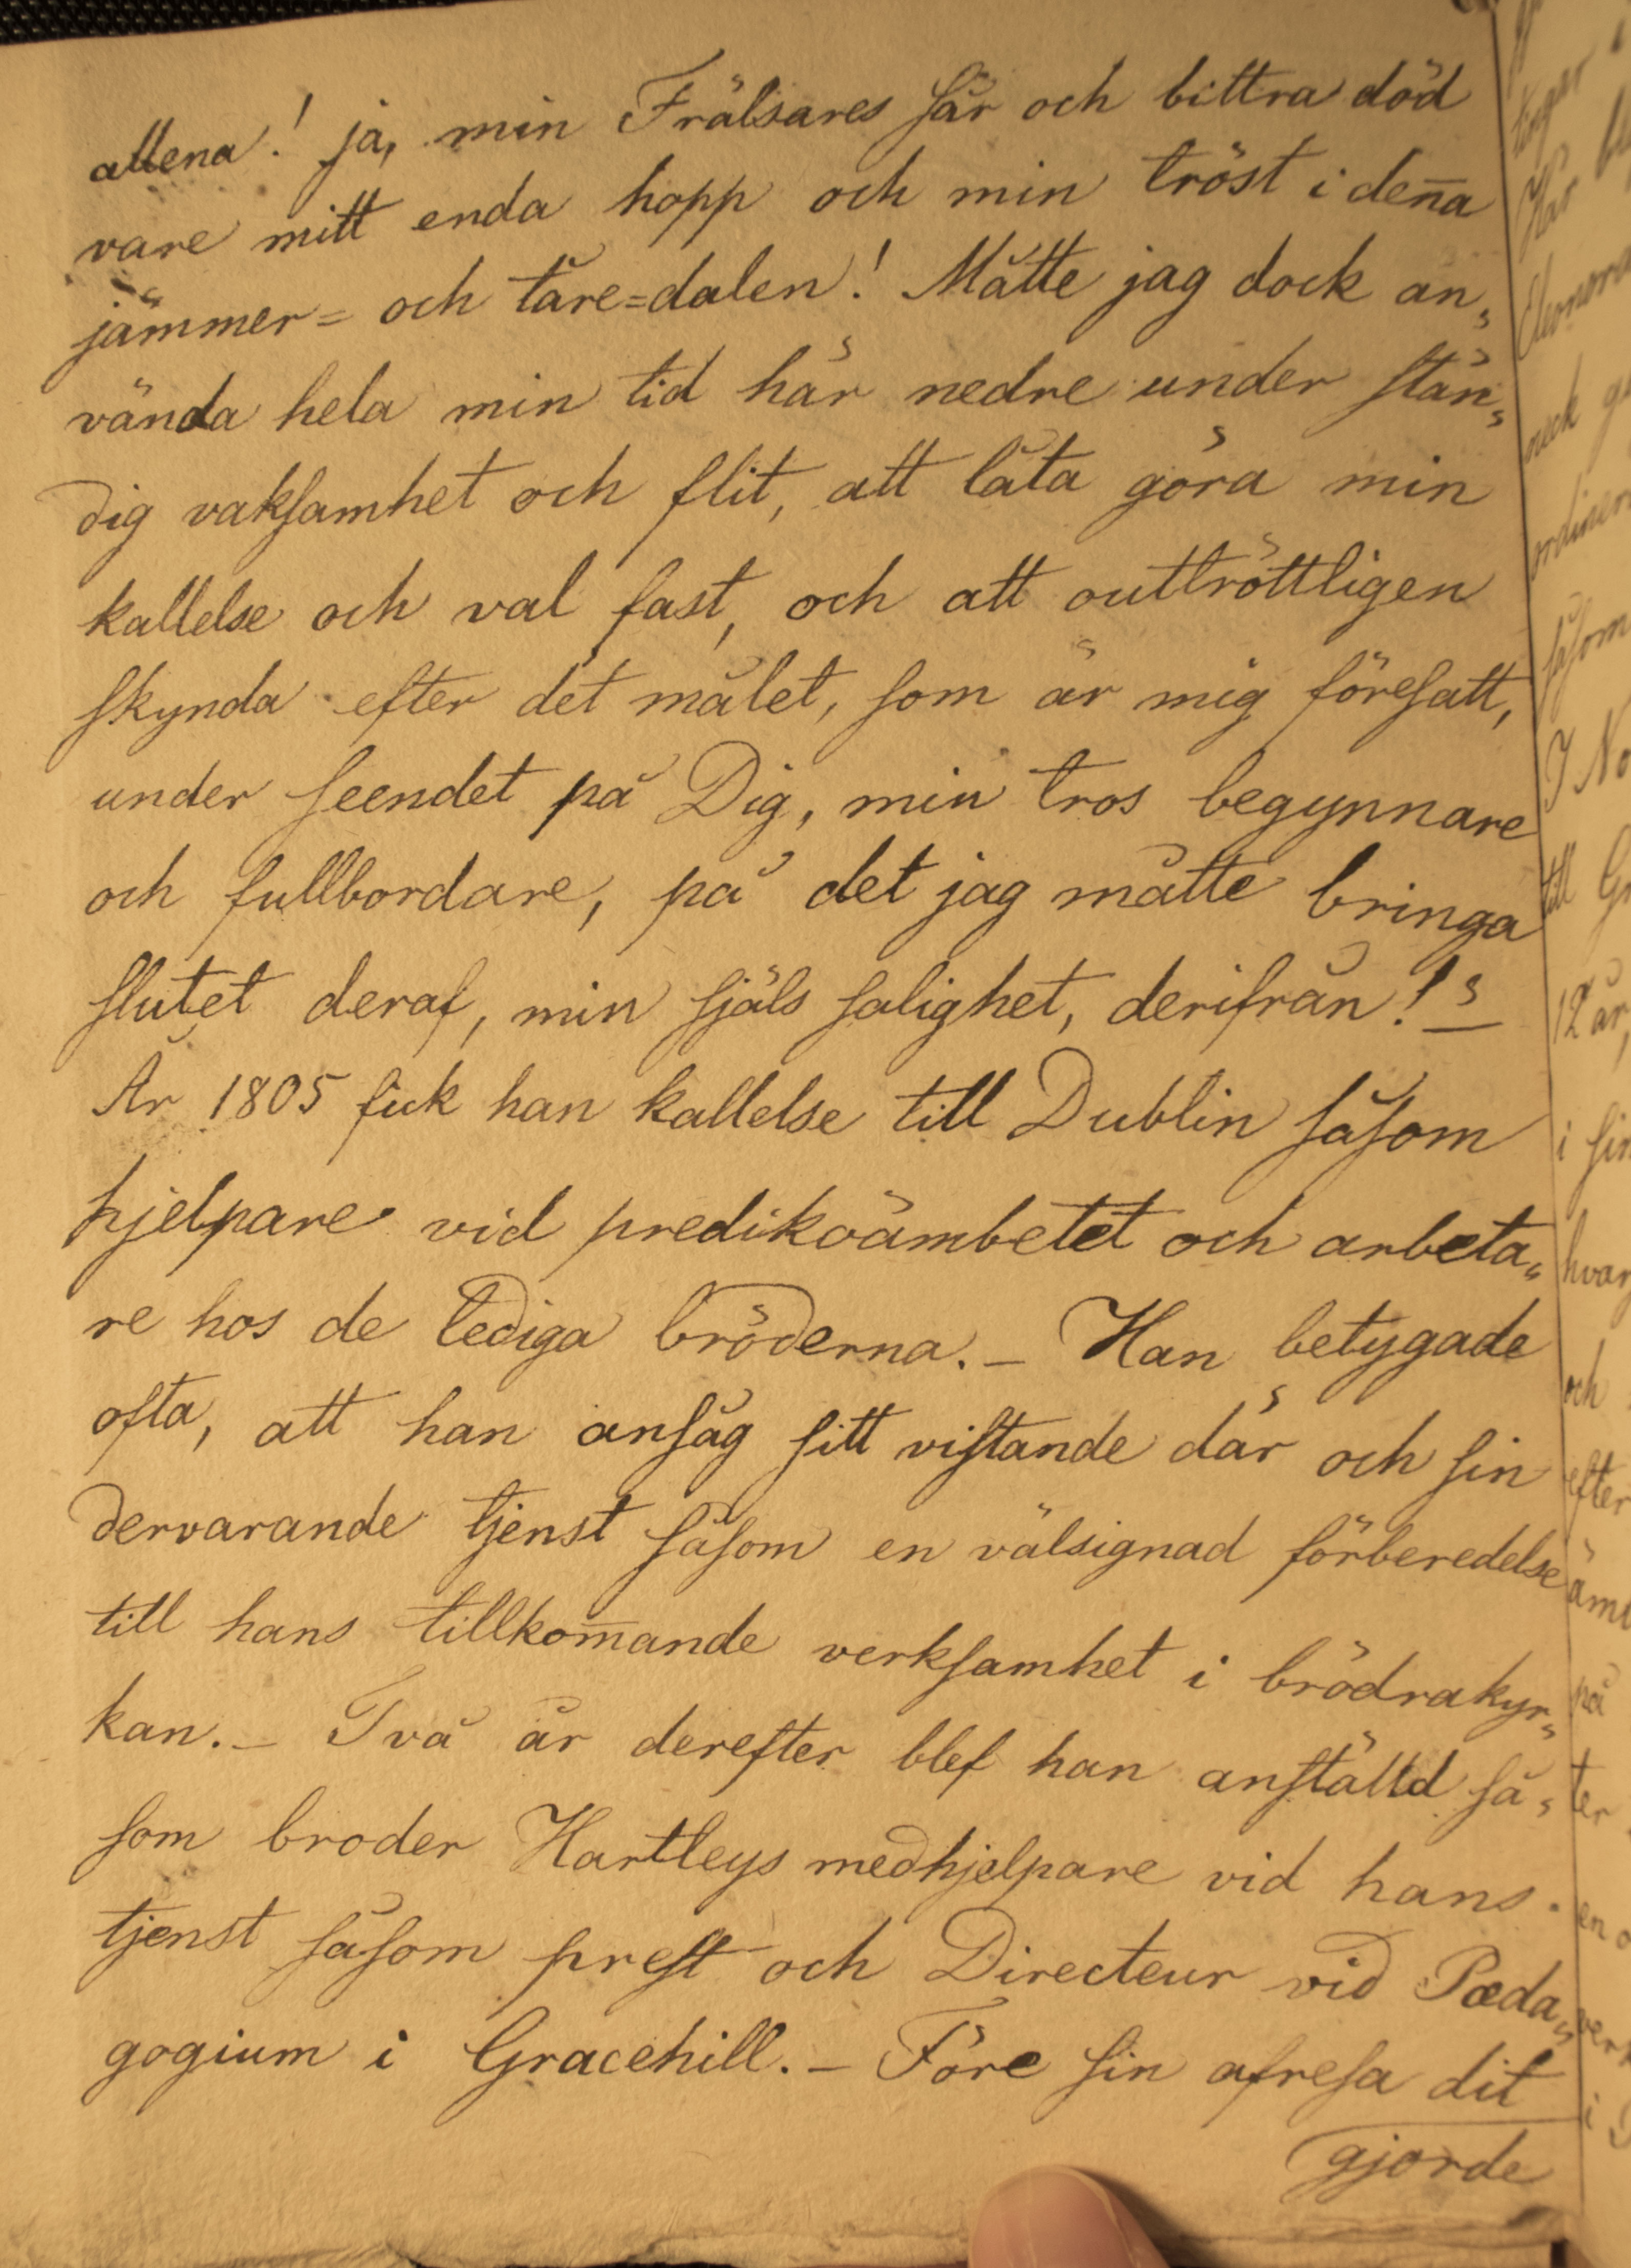 allena! ja, min Frälsares sår och bittra död
vare mitt enda hopp och min tröst i deña
jämmer= och tåre=dalen! Måtte jag dock an„
vända hela min tid här nedre under stän„
dig vaksamhet och flit, att låta göra min
kallelse och val fast, och att outtröttligen
skynda efter det målet, som är mig föresatt,
under seendet på Dig, min tros begynnare
och fullbordare, på det jag måtte bringa
slutet deraf, min själs salighet, derifrån!"
År 1805 fick han kallelse till Dublin såsom
hjelpare vid predikoämbetet och arbeta„
re hos de lediga bröderna. – Han betygade
ofta, att han ansåg sitt vistande där och sin
dervarande tjenst såsom en välsignad förberedelse
till hans tillkom̄ande verksamhet i brödrakyr„
kan. – Två år derefter blef han anställd så„
som broder Hartleys medhjelpare vid hans
tjenst såsom prest och Directeur vid Pæda„
gogium i Gracehill. – Före sin afresa dit
gjorde
Här
Eleonora
ordiner
såsom
I No
till Gr
12 år,
i sin
hvar
och
efter
på
ter